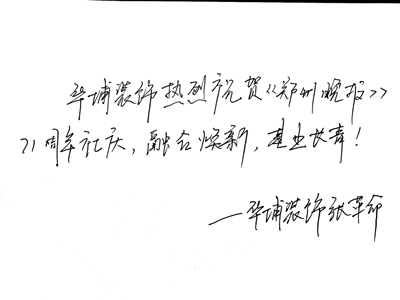 华埔装饰热烈祝贺《郑州晚报》
71周年社庆，融合焕新，基业长青！
—华埔装饰张革命